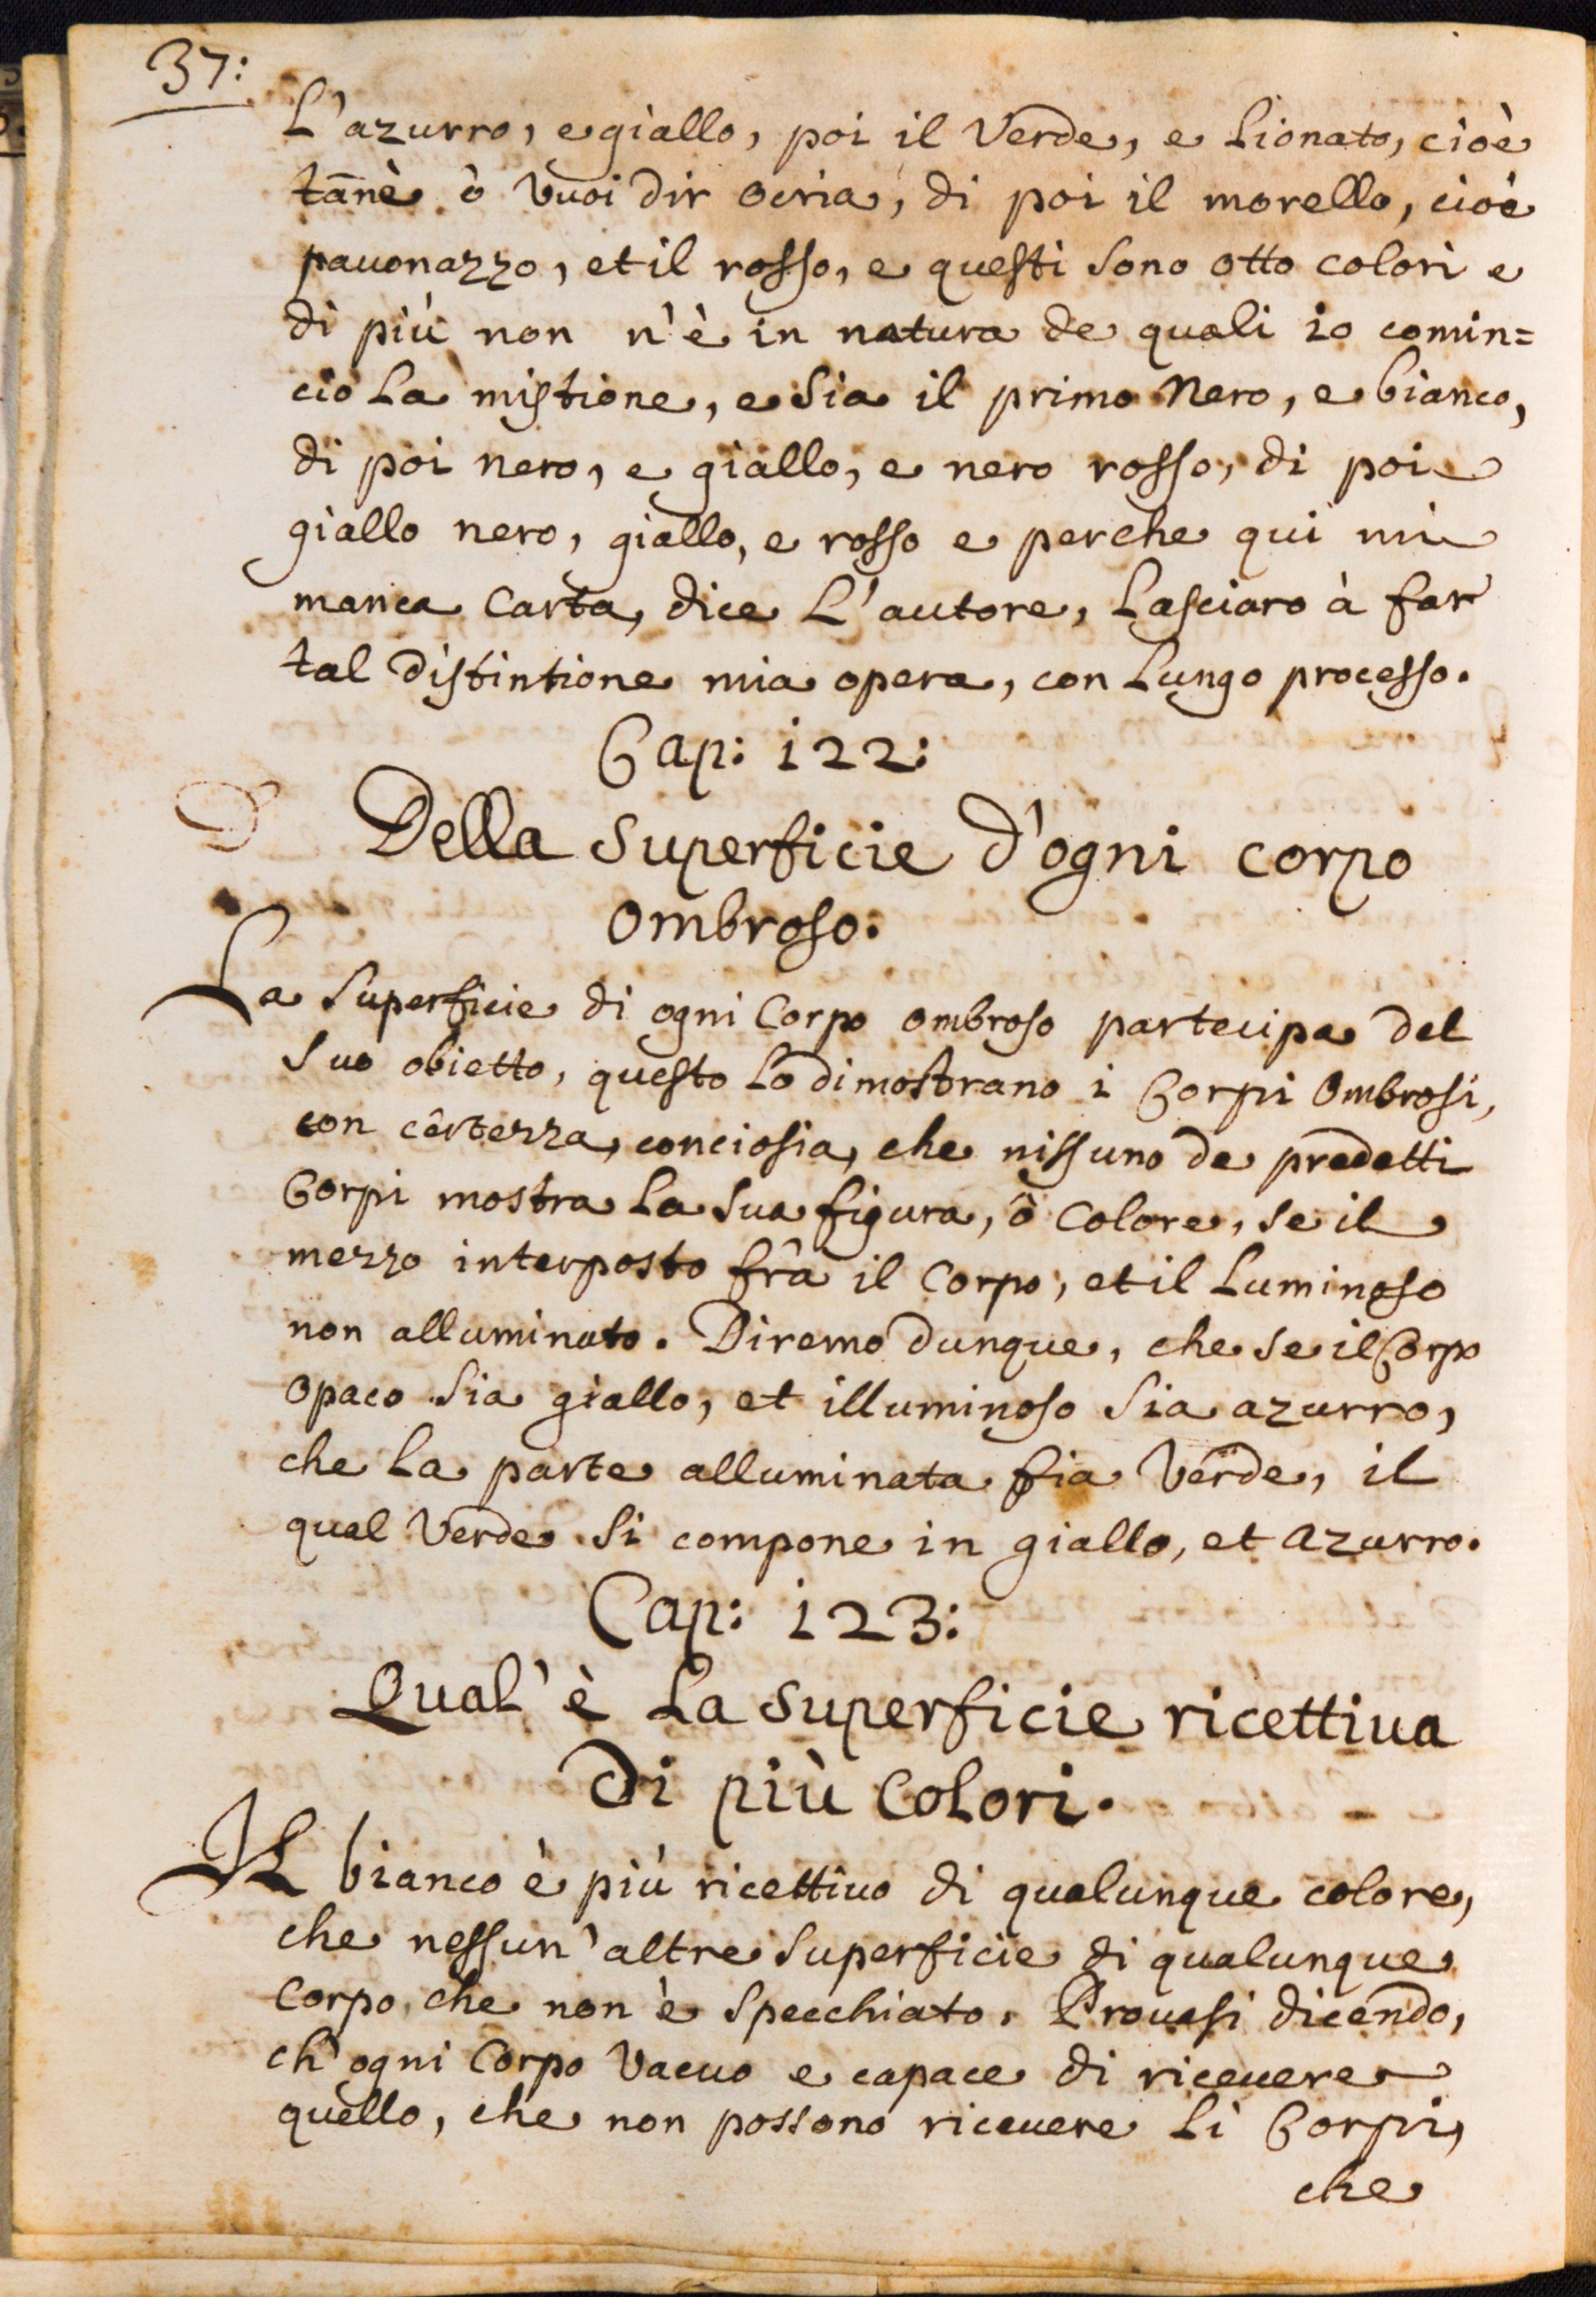 37:
L'azurro, e giallo, poi il Verde, e Lionato, cioè
tānè ò Vuoi dir ocria, di poi il morello, cioè
pauonazzo, et il rosso, e questi sono otto colori e
di più non n'è in natura de quali io comin=
ciò La mistione, e sia il primo Nero, e bianco,
di poi nero, e giallo, e nero rosso, di poi
giallo nero, giallo, e rosso e perche qui mi
manca Carta, dice L'autore, Lasciaro à far
tal distintione mia opera, con Lungo processo.
Cap: 122:
D Della superficie d'ogni corpo
ombroso.
La superficie di ogni Corpo ombroso partecipa del
suo obietto, questo Lo dimostrano i Corpi Ombrosi,
con certezza, conciosia, che nissuno de predetti
Corpi mostra La sua figura, ò Colore, se il
mezzo interposto frà il Corpo, et il Luminoso
non alluminato. Diremo dunque, che se il Corpo
opaco sia giallo, et illuminoso sia azurro,
che La parte alluminata fia Verde, il
qual Verde si compone in giallo, et azurro.
Cap: 123:
Qual'è La superficie ricettiua
di più Colori.
Il bianco è più ricettiuo di qualunque colore,
che nessun'altre superficie di qualunque
Corpo, che non è specchiato. Prouasi dicendo,
ch'ogni Corpo Vacuo e capace di riceuere
quello, che non possono riceuere Li Corpi,
che